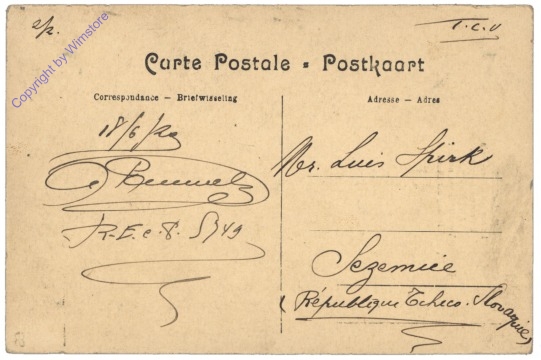 T.C.V
Copyright by Wimstore
Carte Postale = Postkaart
Correspondance — Briefwisseling
Adresse — Adres
18/6/29
Mr. Luis Spirk
R.E.C.8. 5749
Sezemice
(République Tcheco-Slovaquie)